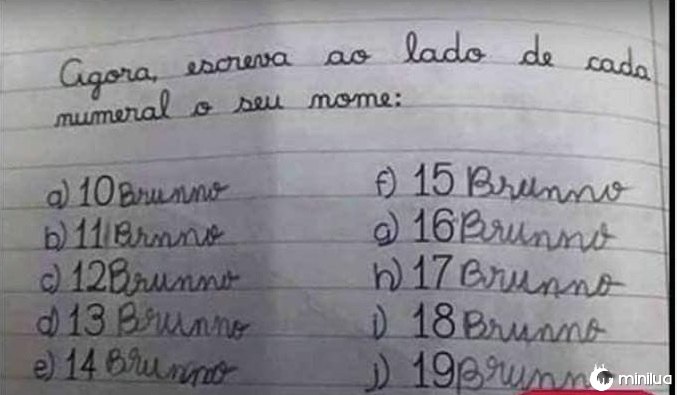 Agora, escreva ao lado de cada
numeral o seu nome:
a) 10 Brunno
b) 11 Brnno
c) 12 Brunno
d) 13 Brunno
e) 14 Brunno
f) 15 Brunno
g) 16 Brunno
h) 17 Brunno
i) 18 Brunno
j) 19 Brunno
minilua